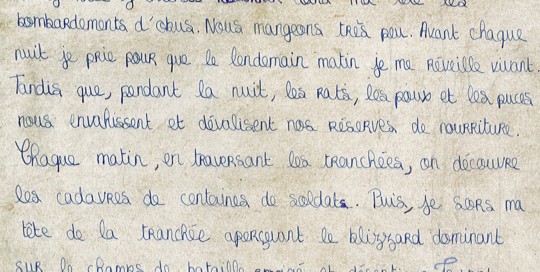 bombardements d'obus. Nous mangeons très peu. Avant chaque
nuit je prie pour que le lendemain matin je me réveille vivant.
Tandis que, pendant la nuit, les rats, les poux et les puces
nous envahissent et dévalisent nos réserves de nourriture.
Chaque matin, en traversant les tranchées, on découvre
les cadavres de centaines de soldats. Puis, je sors ma
tête de la tranchée aperçevant le blizzard dominant
sur le champs de bataille